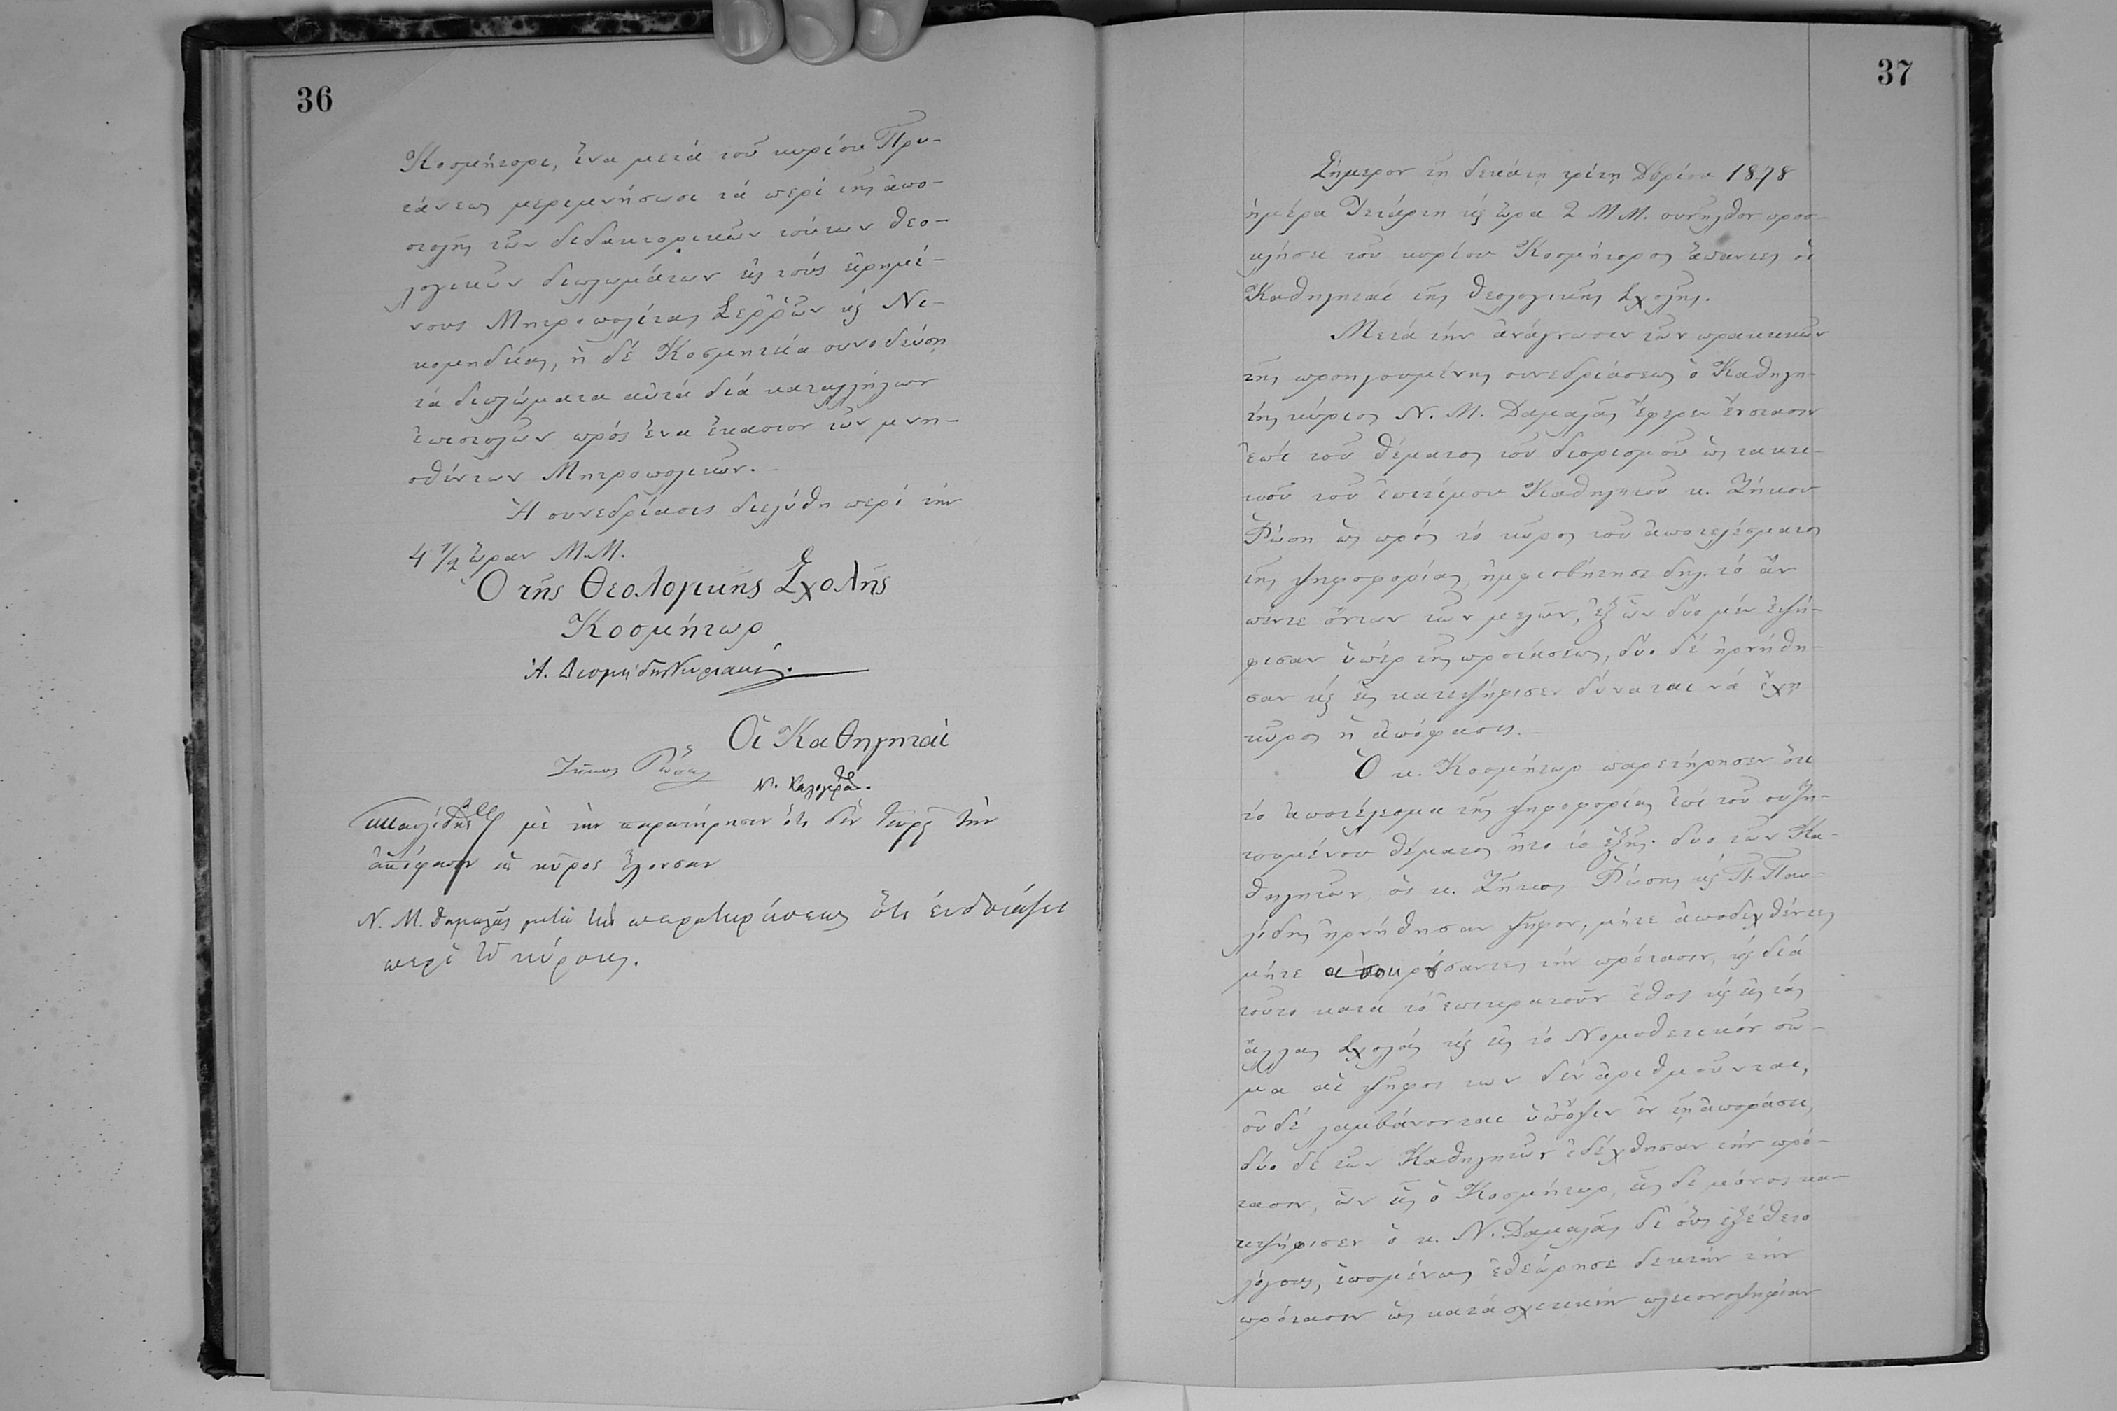 36
Κοσμήτορι, ἵνα μετά τοῦ κυρίου Πρυ-
τάνεως μεριμνήσωσι τά περί τῆς ἀπο-
στολῆς τῶν διδακτορικῶν τούτων θεο-
λογικῶν διπλωμάτων εἰς τούς εἰρημέ-
νους Μητροπολίτας Σερρῶν καί Νι-
κομηδείας, ἡ δέ Κοσμητεία συνοδεύσῃ
τά διπλώματα αὐτά διά καταλλήλων
ἐπιστολῶν πρός ἕνα ἕκαστον τῶν μνη-
σθέντων Μητροπολιτῶν.
Ἡ συνεδρίασις διελύθη περί τήν
4 1/2 ὥραν Μ.Μ.
Ὁ τῆς Θεολογικῆς Σχολῆς
Κοσμήτωρ
Ἀ. Διομήδης Κυριακός.
Οἱ Καθηγηταί
Ζῆκος Ῥώσης
Ν. Καλογερᾶς.
Παυλίδης μέ τήν παρατήρησιν ὅτι δέν θεωρεῖ τήν
ἀπόφασιν ὡς κῦρος ἔχουσαν
Ν. Μ. Δαμαλᾶς μετά τῆς παρατηρήσεως ὅτι ἐνδοιάζει
περί τοῦ κύρους.
37
Σήμερον τῇ δεκάτῃ τρίτῃ Δβρίου 1878
ἡμέρᾳ Τετάρτῃ καί ὥρᾳ 2 Μ.Μ. συνῆλθον προσ-
κλήσει τοῦ κυρίου Κοσμήτορος ἅπαντες οἱ
Καθηγηταί τῆς Θεολογικῆς Σχολῆς.
Μετά τήν ἀνάγνωσιν τῶν πρακτικῶν
τῆς προηγουμένης συνεδριάσεως ὁ Καθηγη-
τής κύριος Ν. Μ. Δαμαλᾶς ἔφερεν ἔνστασιν
ἐπί τοῦ θέματος τοῦ διορισμοῦ ὡς τακτι-
κοῦ τοῦ ἐπιτίμου Καθηγητοῦ κ. Ζήκου
Ῥώση ὡς πρός τό κῦρος τοῦ ἀποτελέσματος
τῆς ψηφοφορίας, ἠμφισβήτησε δηλ. τό ἄν
πέντε ὄντων τῶν μελῶν, ἐξ ὧν δύο μέν ἐψή-
φισαν ὑπέρ τῆς προτάσεως, δύο δέ ἠρνήθη-
σαν καί εἷς κατεψήφισεν δύναται νά ἔχῃ
κῦρος ἡ ἀπόφασις.
Ὁ κ. Κοσμήτωρ παρετήρησεν ὅτι
τό ἀποτέλεσμα τῆς ψηφοφορίας ἐπί τοῦ συζη-
τουμένου θέματος ἦτο τό ἑξῆς· δύο τῶν Κα-
θηγητῶν, ὁ κ. Ζῆκος Ῥώσης καί Π. Παυ-
λίδης ἠρνήθησαν ψῆφον, μήτε ἀποδεχθέντες
μήτε ἀποκρούσαντες τήν πρότασιν, καί διά
τοῦτο κατά τό ἐπικρατοῦν ἔθος καί εἰς τάς
ἄλλας Σχολάς καί εἰς τό Νομοθετικόν σῶ-
μα αἱ ψῆφοι των δέν ἀριθμοῦνται,
οὐδέ λαμβάνονται ὑπ' ὄψιν ἐν τῇ ἀποφάσει,
δύο δέ τῶν Καθηγητῶν ἐδέχθησαν τήν πρό-
τασιν, ὧν εἷς ὁ Κοσμήτωρ, εἷς δέ μόνος κα-
τεψήφισεν ὁ κ. Ν. Δαμαλᾶς δι' οὕς ἐξέθετο
λόγους, ἑπομένως ἐθεώρησε δεκτήν τήν
πρότασιν ὡς κατά σχετικήν πλειονοψηφίαν